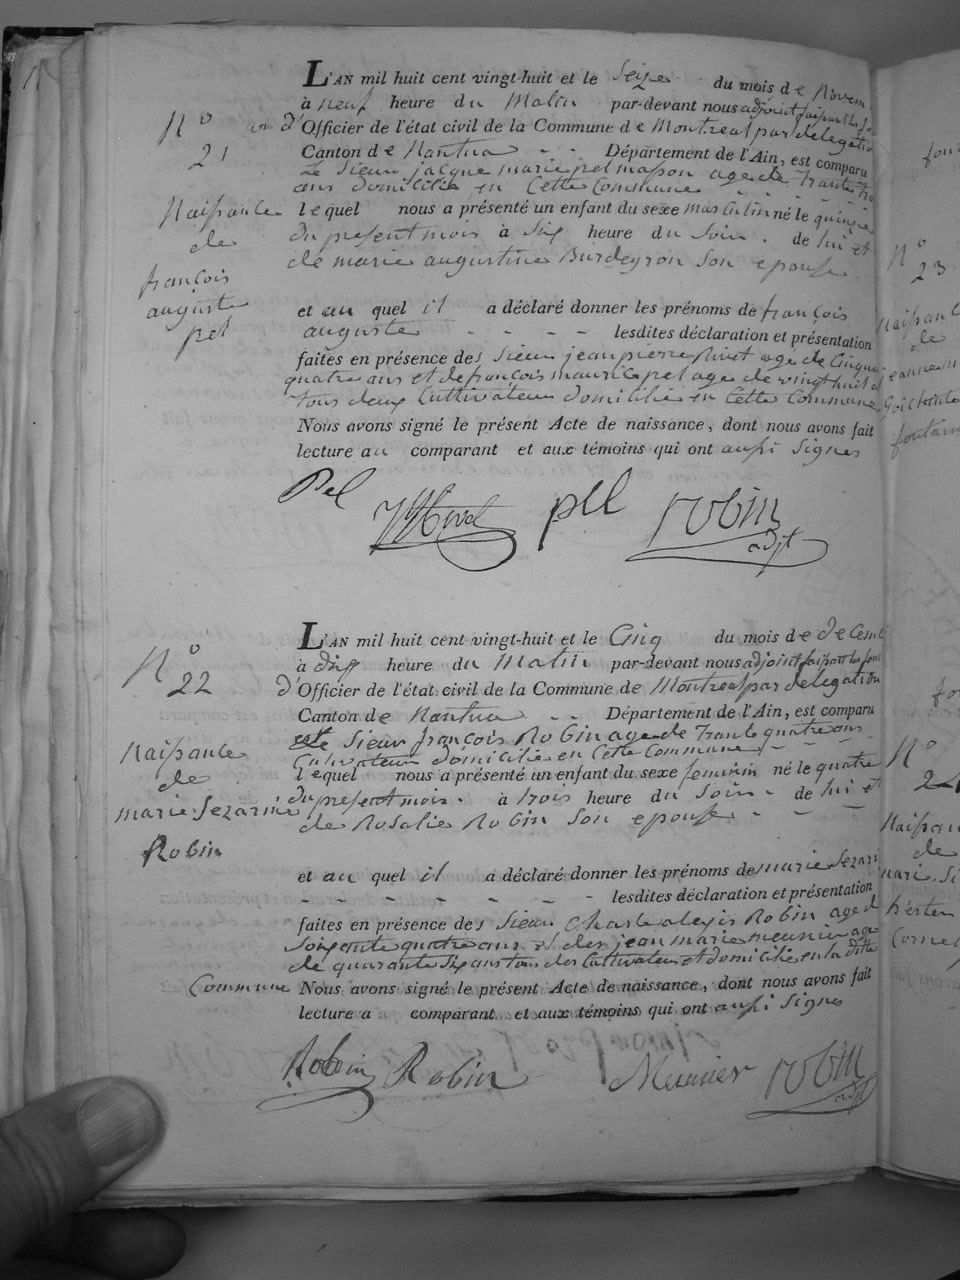 L'AN mil huit cent vingt-huit et le Seize du mois de Novem
à neuf heure du Matin par-devant nous adjoint faisant les fon
d'Officier de l'état civil de la Commune de Montreal par delegatio
Canton de Nantua - - Département de l'Ain, est comparu
Le Sieur jacque marie pel masson age de Trante tro
ans domicilie en Cette Commune
lequel nous a présenté un enfant du sexe masculin né le quinze
du present mois à Six heure du Soir. de lui et
de marie augustine Burdeyron Son epouse
et au quel il a déclaré donner les prénoms de françois
auguste - - - - lesdites déclaration et présentation
faites en présence des Sieur jean pierre Rivet age de Cinqua
quatre ans et de françois maurice pel age de vingt huit a
tous deux Cultivateur domicilié en Cette Commune
Nous avons signé le présent Acte de naissance, dont nous avons fait
lecture au comparant et aux témoins qui ont aussi Signes
Pel
pel
robin
adjt
N°
21
Naissance
de
françois
auguste
pel
L'AN mil huit cent vingt-huit et le Cinq du mois de deCemb
à dix heure du Matin par-devant nous adjoint faisant les fonc
d'Officier de l'état civil de la Commune de Montreal par delegation
Canton de Nantua - - Département de l'Ain, est comparu
Le Sieur françois Robin age de Trante quatre ans
Cultivateur domicilie en Cette Commune
lequel nous a présenté un enfant du sexe feminin né le quatre
du present mois. à trois heure du Soir - de lui et
de Rosalie Robin Son epouse
et au quel il a déclaré donner les prénoms de marie Sezari
- - - - - - - lesdites déclaration et présentation
faites en présence des Sieur Charle alexis Robin age d
Soixante quatre ans et des jean marie meunier age
de quarante Six ans tous des Cultivateur et domicilie en la ditte
Commune Nous avons signé le présent Acte de naissance, dont nous avons fait
lecture a comparant et aux témoins qui ont aussi Signes
Robin Robin Meunier robin
adjt
N°
22
Naissance
de
marie Sezarine
Robin
N°
23
Naissance
de
N°
24
Naissan
de